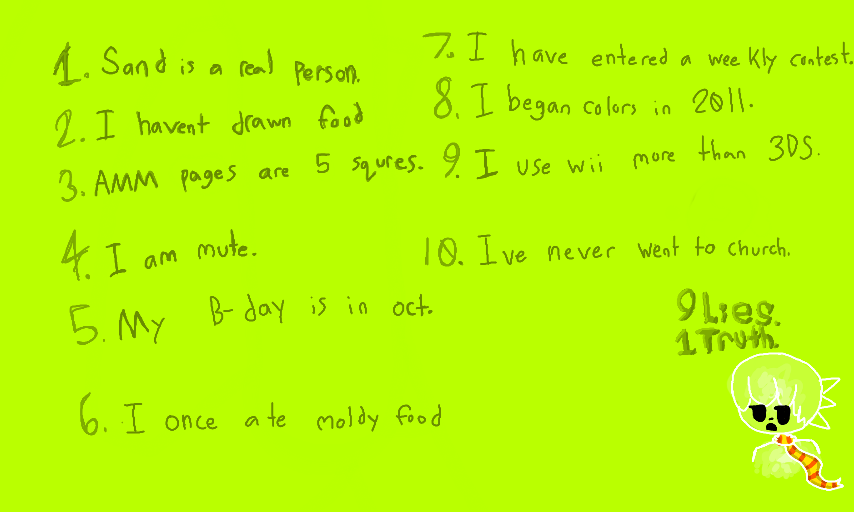 1. Sand is a real person.
2. I havent drawn food
3. AMM pages are 5 squres.
4. I am mute.
5. My B-day is in oct.
6. I once ate moldy food
7. I have entered a weekly contest.
8. I began colors in 2011.
9. I use wii more than 3DS.
10. Ive never went to church.
9 Lies.
1 Truth.